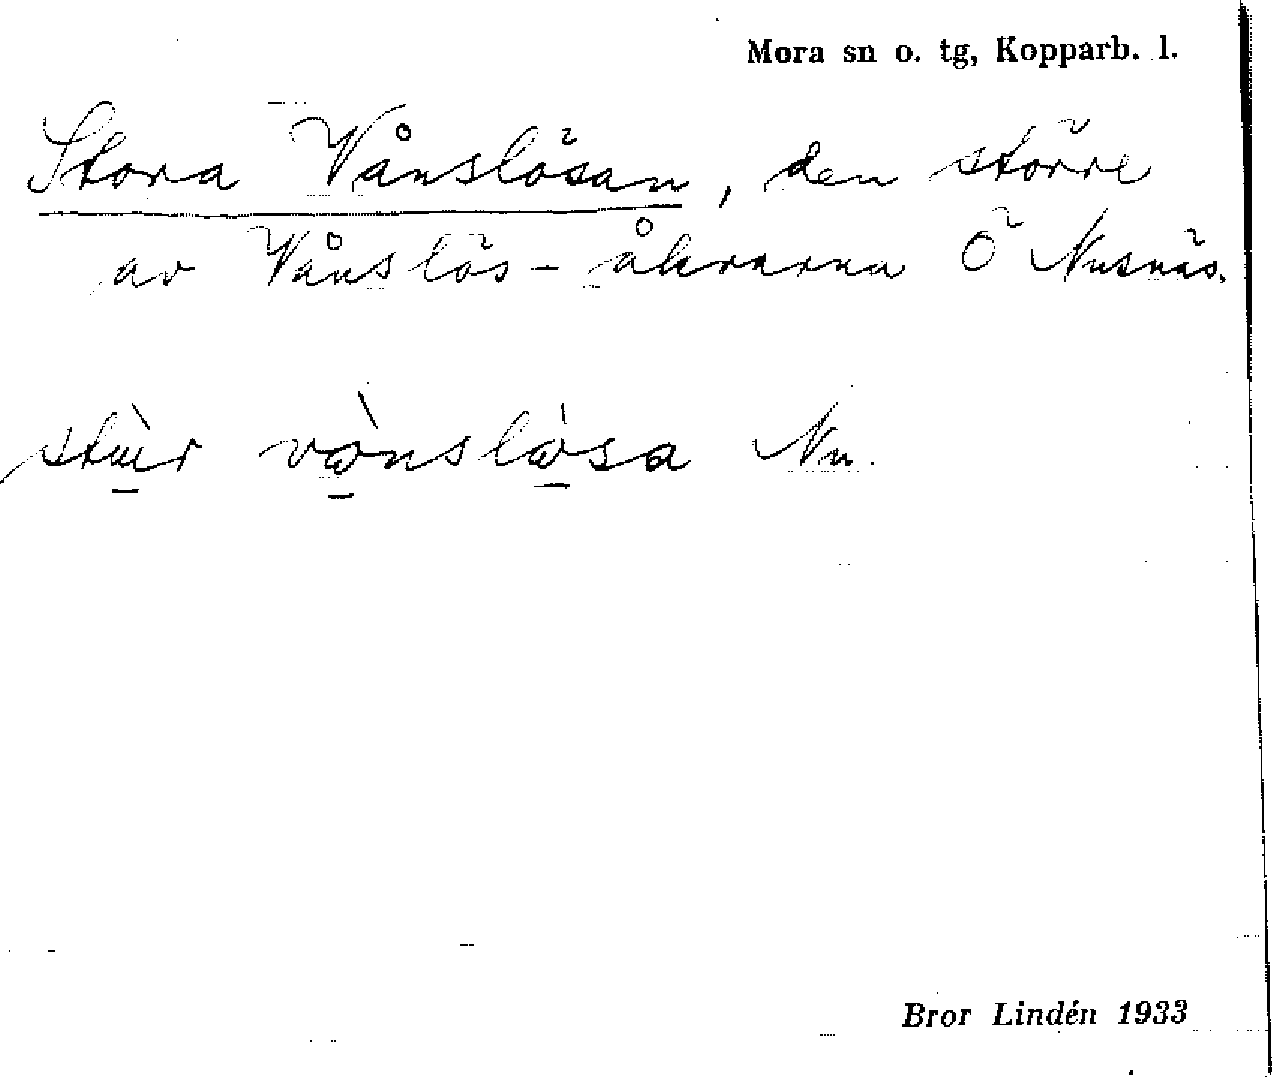 Mora sn o. tg, Kopparb. l.
Stora Vånslösan, den större
av Vånslös-åkrarna Ö Nusnäs.
stùr vånslòsa Nu.
Bror Lindén 1933